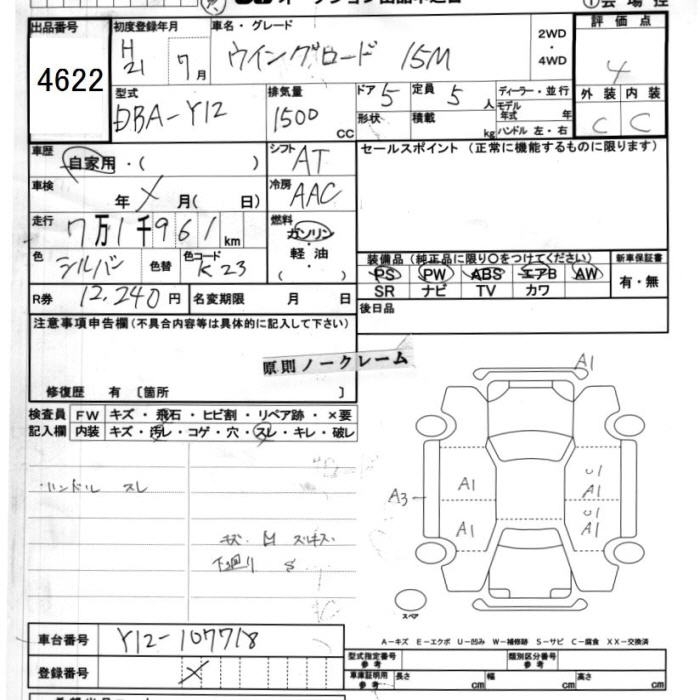 ①会場控
出品番号
4622
初度登録年月
H
21 7月
車名・グレード
ウイングロード 15M
2WD
・
4WD
評価点
4
外装 内装
C C
型式
DBA-Y12
排気量
1500
CC
ドア 5
定員 5人
形状
積載
kg
ディーラー・並行
モデル
年式 年
ハンドル 左・右
車歴
自家用・( )
シフト
AT
セールスポイント (正常に機能するものに限ります)
車検
年 X 月( 日)
冷房
AAC
走行
7万1千961km
燃料
ガソリン
・
軽油
・
( )
色
シルバー
色替
色コード
K23
装備品(純正品に限り〇をつけてください)
PS PW ABS エアB AW
SR ナビ TV カワ
新車保証書
有・無
R券 12,240円
名変期限 月 日
後日品
注意事項申告欄(不具合内容等は具体的に記入して下さい)
原則ノークレーム
修復歴 有 〔箇所 〕
検査員
記入欄
FW キズ・飛石・ヒビ割・リペア跡・×要
内装 キズ・汚レ・コゲ・穴・スレ・キレ・破レ
・ハンドル スレ
下廻り S
A1
A1
U1
A1
A3
A1
U1
A1
スペア
A-キズ E-エクボ U-凹み W-補修跡 S-サビ C-腐食 XX-交換済
車台番号 Y12-107718
登録番号 X
型式指定番号
参考
類別区分番号
参考
車庫証明用
参考
長さ cm 幅 cm 高さ cm